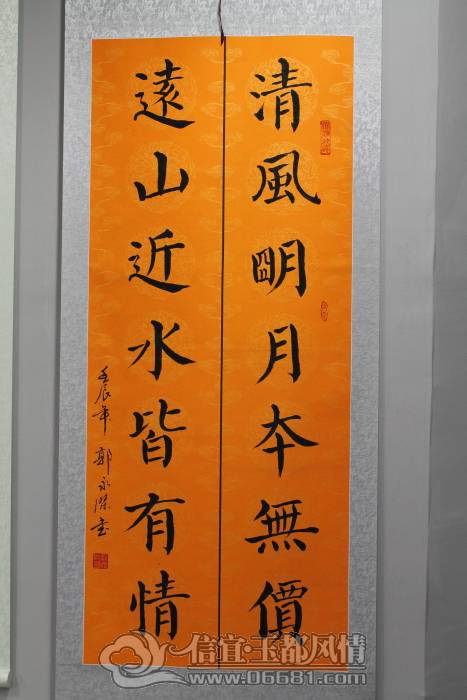 清風明月本無價
遠山近水皆有情
壬辰年 郭永傑書
信宜·玉都风情
www.06681.com